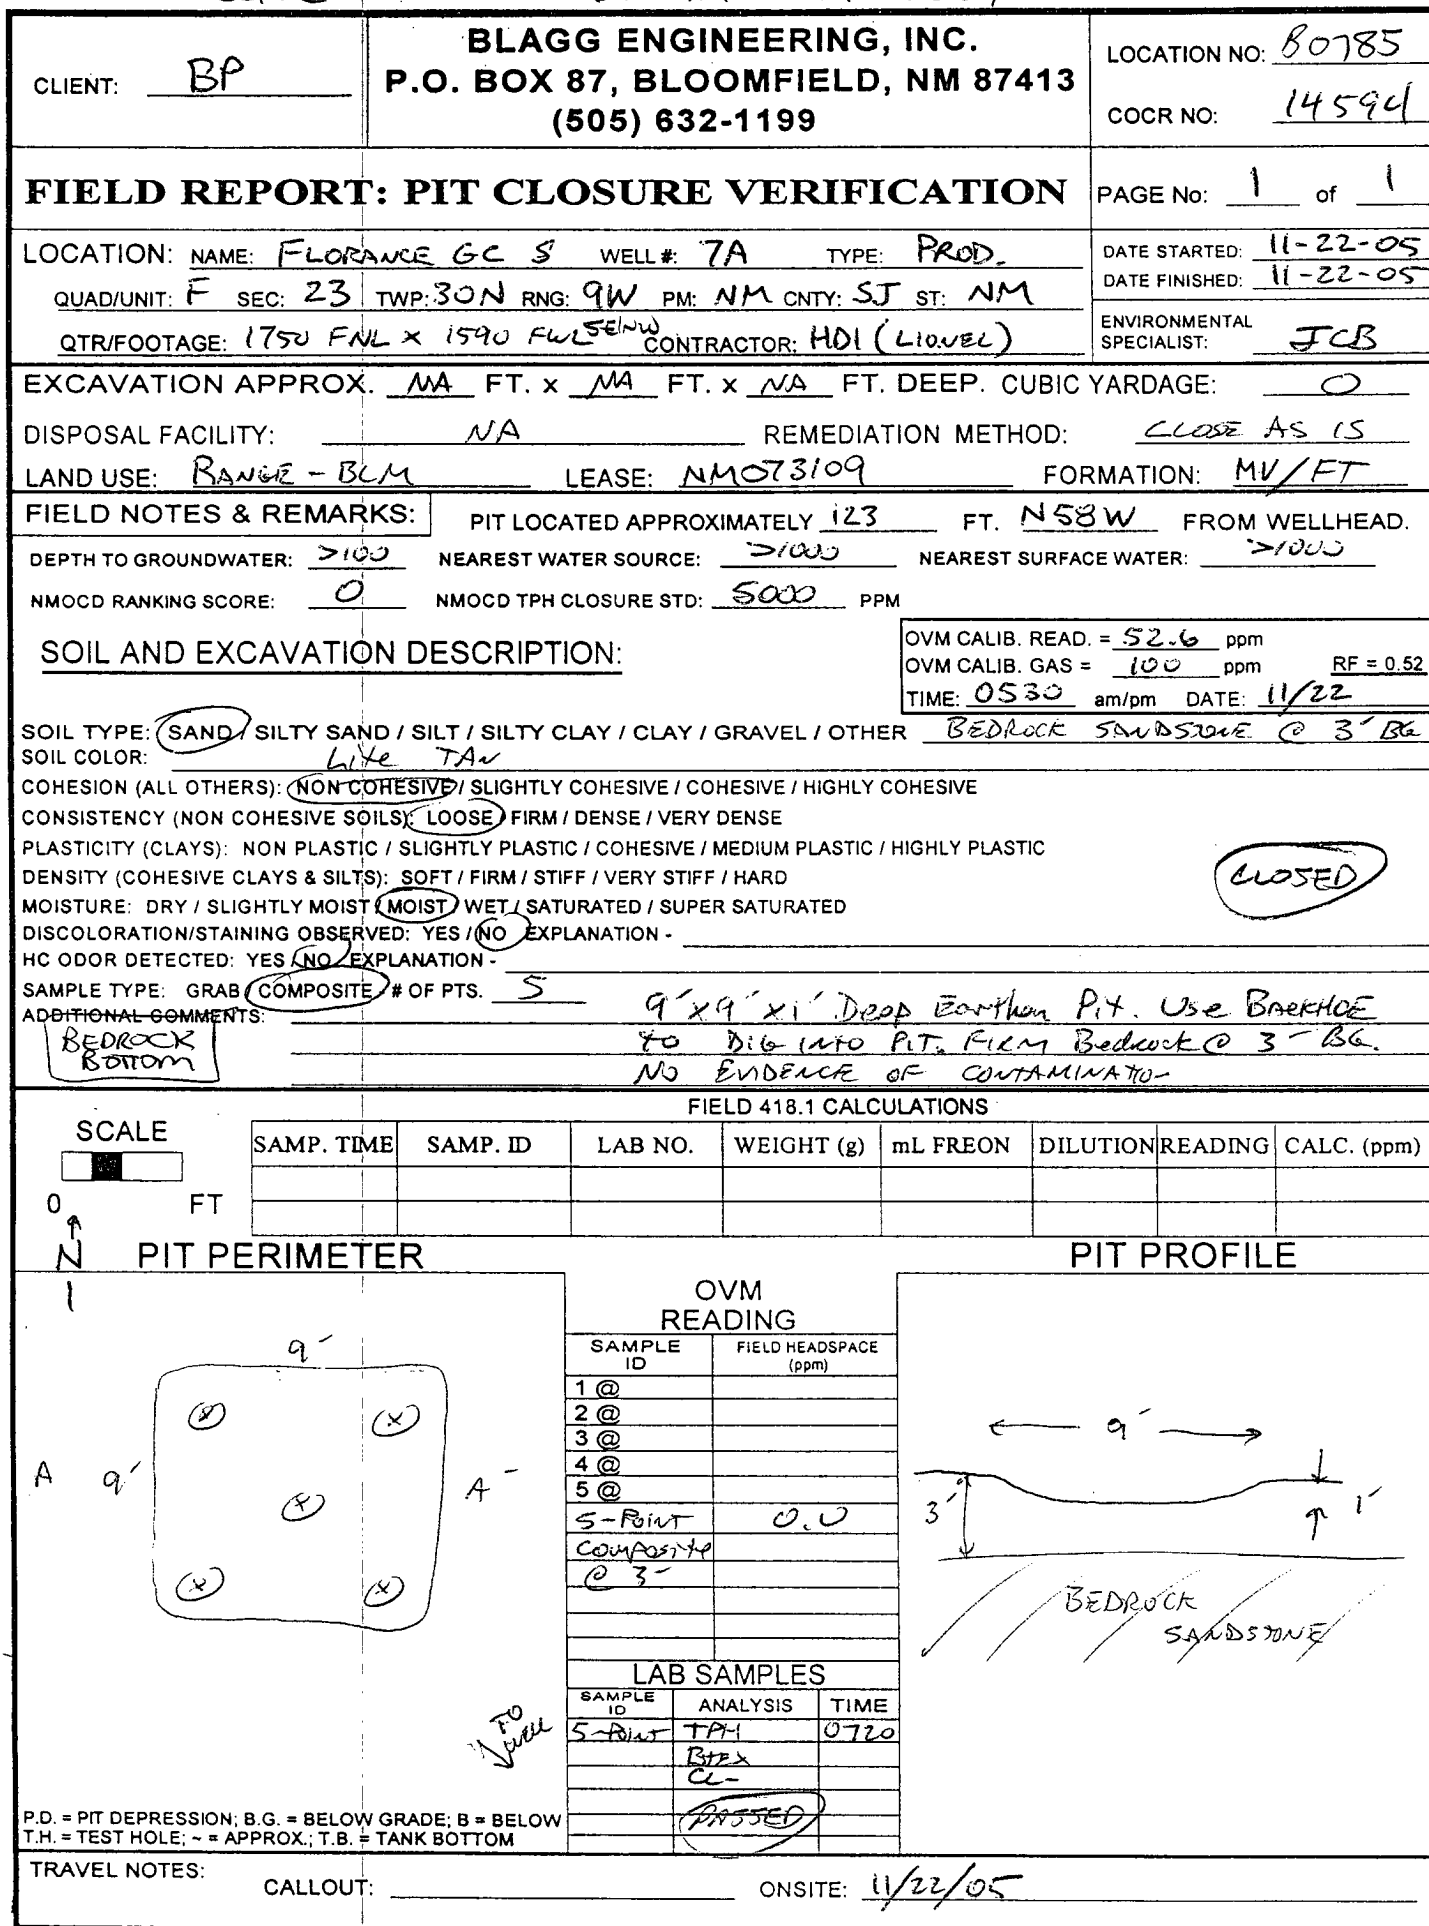 BLAGG ENGINEERING, INC.
CLIENT: BP
P.O. BOX 87, BLOOMFIELD, NM 87413
(505) 632-1199
LOCATION NO: B0785
COCR NO: 14594
FIELD REPORT: PIT CLOSURE VERIFICATION
PAGE No: 1 of 1
LOCATION: NAME: FLORANCE GC S WELL #: 7A TYPE: PROD.
QUAD/UNIT: F SEC: 23 TWP: 30N RNG: 9W PM: NM CNTY: SJ ST: NM
QTR/FOOTAGE: 1750 FNL x 1590 FWL SE/NW CONTRACTOR: HDI (LIONEL)
DATE STARTED: 11-22-05
DATE FINISHED: 11-22-05
ENVIRONMENTAL
SPECIALIST: JCB
EXCAVATION APPROX. NA FT. x NA FT. x NA FT. DEEP. CUBIC YARDAGE: 0
DISPOSAL FACILITY: NA REMEDIATION METHOD: CLOSE AS IS
LAND USE: RANGE - BLM LEASE: NM073109 FORMATION: MV/FT
FIELD NOTES & REMARKS: PIT LOCATED APPROXIMATELY 123 FT. N58W FROM WELLHEAD.
DEPTH TO GROUNDWATER: >100 NEAREST WATER SOURCE: >1000 NEAREST SURFACE WATER: >1000
NMOCD RANKING SCORE: 0 NMOCD TPH CLOSURE STD: 5000 PPM
SOIL AND EXCAVATION DESCRIPTION:
OVM CALIB. READ. = 52.6 ppm
OVM CALIB. GAS = 100 ppm RF = 0.52
TIME: 0530 am/pm DATE: 11/22
SOIL TYPE: SAND / SILTY SAND / SILT / SILTY CLAY / CLAY / GRAVEL / OTHER BEDROCK SANDSTONE @ 3' BG
SOIL COLOR: Lite TAN
COHESION (ALL OTHERS): NON COHESIVE / SLIGHTLY COHESIVE / COHESIVE / HIGHLY COHESIVE
CONSISTENCY (NON COHESIVE SOILS): LOOSE / FIRM / DENSE / VERY DENSE
PLASTICITY (CLAYS): NON PLASTIC / SLIGHTLY PLASTIC / COHESIVE / MEDIUM PLASTIC / HIGHLY PLASTIC
DENSITY (COHESIVE CLAYS & SILTS): SOFT / FIRM / STIFF / VERY STIFF / HARD
CLOSED
MOISTURE: DRY / SLIGHTLY MOIST / MOIST / WET / SATURATED / SUPER SATURATED
DISCOLORATION/STAINING OBSERVED: YES / NO EXPLANATION -
HC ODOR DETECTED: YES / NO EXPLANATION -
SAMPLE TYPE: GRAB / COMPOSITE # OF PTS. 5
ADDITIONAL COMMENTS: 9' x 9' x 1' Deep Earthen Pit. Use BACKHOE
to DIG INTO PIT. FIRM Bedrock @ 3' BG.
NO EVIDENCE OF CONTAMINATIO-
BEDROCK
BOTTOM
FIELD 418.1 CALCULATIONS
SCALE
0 FT
SAMP. TIME SAMP. ID LAB NO. WEIGHT (g) mL FREON DILUTION READING CALC. (ppm)
N PIT PERIMETER
PIT PROFILE
9'
A 9' A'
TO
WELL
OVM
READING
SAMPLE ID FIELD HEADSPACE (ppm)
1 @
2 @
3 @
4 @
5 @
5-Point 0.0
Composite
@ 3'
9'
3' 1'
BEDROCK
SANDSTONE
LAB SAMPLES
SAMPLE ID ANALYSIS TIME
5-Point TPH 0720
BTEX
CL-
PASSED
P.D. = PIT DEPRESSION; B.G. = BELOW GRADE; B = BELOW
T.H. = TEST HOLE; ~ = APPROX.; T.B. = TANK BOTTOM
TRAVEL NOTES: CALLOUT: ONSITE: 11/22/05